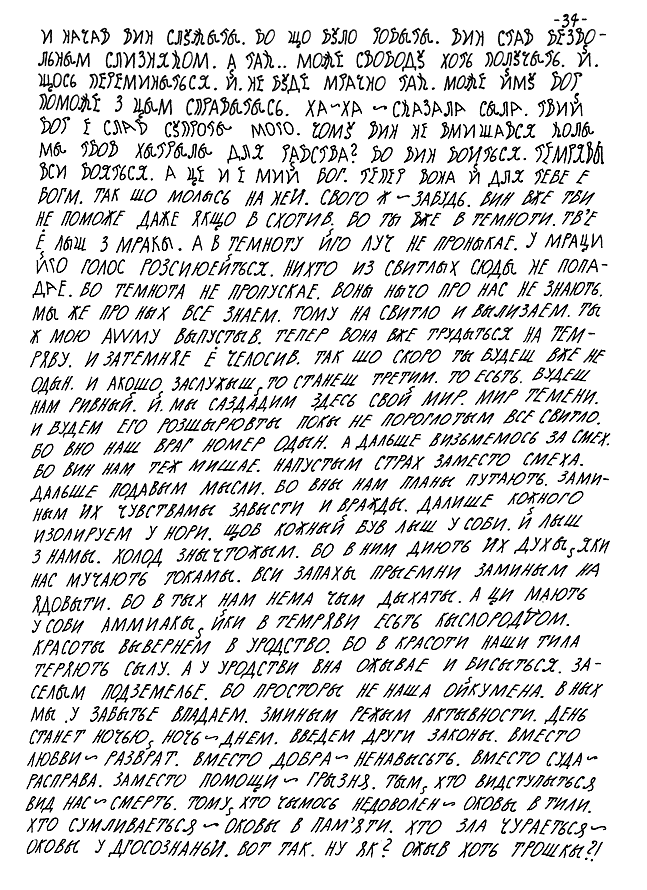 -34-
И НАЧАВ ВИН СЛУЖЫТЫ. БО ЩО БУЛО РОБЫТЫ. ВИН СТАВ БЕЗВО-
ЛЬНЫМ СЛИЗНЯКОМ. А ТАК.. МОЖЕ СВОБОДУ ХОТЬ ПОЛУЧЫТЬ. Й.
ЩОСЬ ПЕРЕМИНЫТЬСЯ. Й. НЕ БУДЕ МРАЧНО ТАК. МОЖЕ ЙМУ БОГ
ПОМОЖЕ З ЦЫМ СПРАВЫТЫСЬ. ХА~ХА ~ СКАЗАЛА СЫЛА. ТВИЙ
БОГ Е СЛАБ СУПРОТЫ МОГО. ЧОМУ ВИН НЕ ВМИШАВСЯ КОЛЫ
МЫ ТВОВ ХЫТРЫЛЫ ДЛЯ РАБСТВА? БО ВИН БОИТЬСЯ. ТЕМРЯВЫ
ВСИ БОЯТЬСЯ. А ЦЕ И Е МИЙ БОГ. ТЕПЕР ВОНА Й ДЛЯ ТЕБЕ Е
БОГМ. ТАК ШО МОЛЫСЬ НА НЕЙ. СВОГО Ж ~ ЗАБУДЬ. ВИН ВЖЕ ТБИ
НЕ ПОМОЖЕ ДАЖЕ ЯКЩО Б СХОТИВ. БО ТЫ ВЖЕ В ТЕМНОТИ. ТВ'Е
Е ЛЫШ З МРАКЫ. А В ТЕМНОТУ ЙГО ЛУЧ НЕ ПРОНЫКАЕ. У МРАЦИ
ЙГО ГОЛОС РОЗСИЮЕЙТЬСЯ. НИХТО ИЗ СВИТЛЫХ СЮДЫ НЕ ПОПА-
ДАЕ. БО ТЕМНОТА НЕ ПРОПУСКАЕ. ВОНЫ НЫЧО ПРО НАС НЕ ЗНАЮТЬ.
МЫ ЖЕ ПРО НЫХ ВСЕ ЗНАЕМ. ТОМУ НА СВИТЛО И ВЫЛИЗАЕМ. ТЫ
Ж МОЮ АWМУ ВЫПУСТЫВ. ТЕПЕР ВОНА ВЖЕ ТРУДЫТЬСЯ НА ТЕМ-
РЯВУ. И ЗАТЕМНЯЕ Ё ЧЕЛОСИВ. ТАК ШО СКОРО ТЫ БУДЕШ ВЖЕ НЕ
ОДЫН. И АКОЩО ЗАСЛУЖЫШ, ТО СТАНЕШ ТРЕТИМ. ТО ЕСЬТЬ. БУДЕШ
НАМ РИВНЫЙ. Й. МЫ САЗДАДИМ ЗДЕСЬ СВОЙ МИР. МИР ТЕМЕНИ.
И БУДЕМ ЕГО РОЗШЫРЮВТЫ ПОКЫ НЕ ПОРОГЛОТЫМ ВСЕ СВИТЛО.
БО ВНО НАШ ВРАГ НОМЕР ОДЫН. А ДАЛЬШЕ ВИЗЬМЕМОСЬ ЗА СМЕХ.
БО ВИН НАМ ТЕЖ МИШАЕ. НАПУСТЫМ СТРАХ ЗАМЕСТО СМЕХА.
ДАЛЬШЕ ПОДАВЫМ МЫСЛИ. БО ВНЫ НАМ ПЛАНЫ ПУТАЮТЬ. ЗАМИ-
НЫМ ИХ ЧУВСТВАМЫ ЗАВЫСТИ И ВРАЖДЫ. ДАЛИШЕ КОЖНОГО
ИЗОЛИРУЕМ У НОРИ. ЩОБ КОЖНЫЙ БУВ ЛЫШ У СОБИ. Й ЛЫШ
З НАМЫ. ХОЛОД ЗНЫЧТОЖЫМ. БО В НИМ ДИЮТЬ ИХ ДУХЫ, ЯКИ
НАС МУЧАЮТЬ ТОКАМЫ. ВСИ ЗАПАХЫ ПРЫЕМНИ ЗАМИНЫМ НА
ЯДОВЫТИ. БО В ТЫХ НАМ НЕМА ЧЫМ ДЫХАТЫ. А ЦИ МАЮТЬ
У СОБИ АММИАКЫ, ЙКИ В ТЕМРЯВИ ЕСЬТЬ КЫСЛОРОДОМ.
КРАСОТЫ ВЫВЕРНЕМ В УРОДСТВО. БО В КРАСОТИ НАШИ ТИЛА
ТЕРЯЮТЬ СЫЛУ. А У УРОДСТВИ ВНА ОЖЫВАЕ И БИСЫТЬСЯ. ЗА-
СЕЛЫМ ПОДЗЕМЕЛЬЕ. БО ПРОСТОРЫ НЕ НАША ОЙКУМЕНА. В НЫХ
МЫ У ЗАБЫТЬЕ ВПАДАЕМ. ЗМИНЫМ РЕЖЫМ АКТЫВНОСТИ. ДЕНЬ
СТАНЕТ НОЧЬЮ, НОЧЬ ~ ДНЕМ. ВВЕДЕМ ДРУГИ ЗАКОНЫ. ВМЕСТО
ЛЮБВИ ~ РАЗВРАТ. ВМЕСТО ДОБРА ~ НЕНАВЫСЬТЬ. ВМЕСТО СУДА ~
РАСПРАВА. ЗАМЕСТО ПОМОЩИ ~ ГРЫЗНЯ. ТЫМ, ХТО ВИДСТУПЫТЬСЯ
ВИД НАС ~ СМЕРТЬ. ТОМУ, ХТО ЧЫМОСЬ НЕДОВОЛЕН ~ ОКОВЫ В ТИЛИ.
ХТО СУМЛИВАЕТЬСЯ ~ ОКОВЫ В ПАМ'ЯТИ. ХТО ЗЛА ЧУРАЕТЬСЯ ~
ОКОВЫ У ДГОСОЗНАНЬИ. ВОТ ТАК. НУ ЯК? ОЖЫВ ХОТЬ ТРОШКЫ?!